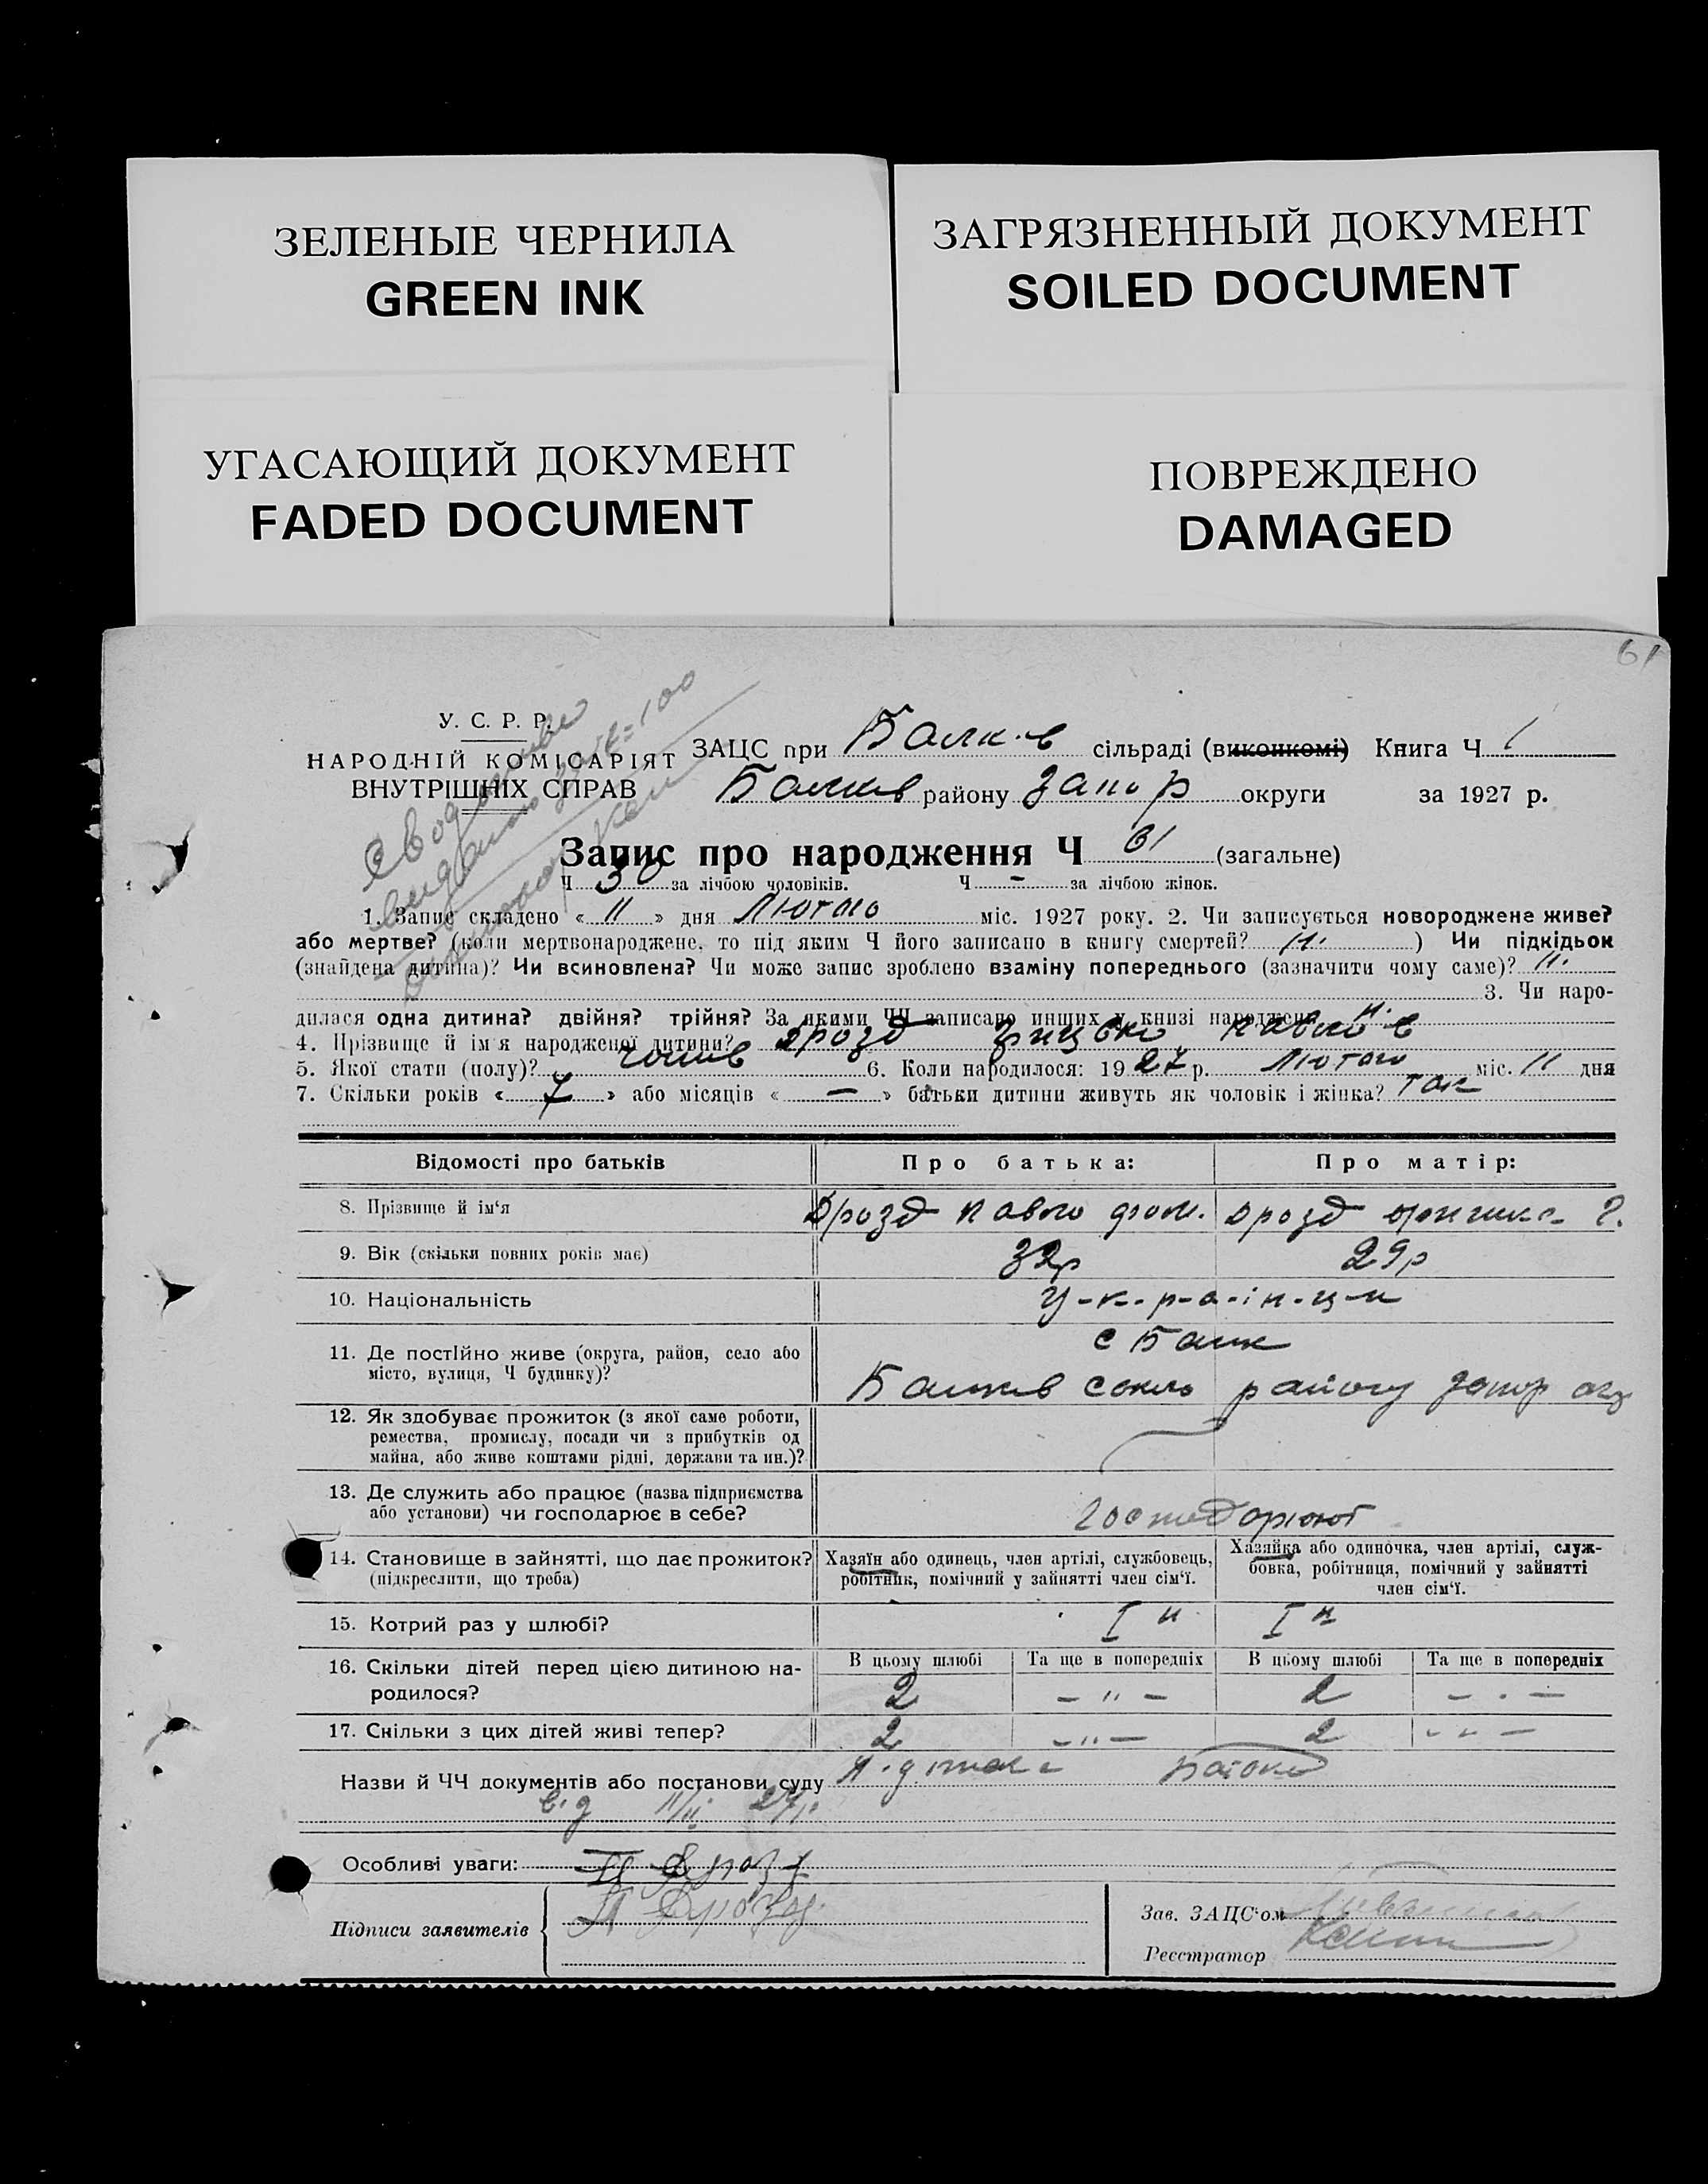 ЗЕЛЕНЫЕ ЧЕРНИЛА
GREEN INK
ЗАГРЯЗНЕННЫЙ ДОКУМЕНТ
SOILED DOCUMENT
УГАСАЮЩИЙ ДОКУМЕНТ
FADED DOCUMENT
ПОВРЕЖДЕНО
DAMAGED
61
У. С. Р. Р.
НАРОДНІЙ КОМІСАРІЯТ
ВНУТРІШНІХ СПРАВ
ЗАЦС при Балків сільраді (виконкомі) Книга Ч 1
Балків району Запор округи за 1927 р.
Запис про народження Ч 61 (загальне)
Ч 30 за лічбою чоловіків. Ч - за лічбою жінок.
1. Запис складено « 11 » дня Лютого міс. 1927 року. 2. Чи записується новороджене живе?
або мертве? (коли мертвонароджене, то під яким Ч його записано в книгу смертей? ) Чи підкідьок
(знайдена дитина)? Чи всиновлена? Чи може запис зроблено взаміну попереднього (зазначити чому саме)?
3. Чи наро-
дилася одна дитина? двійня? трійня? За якими ЧЧ записано инших у книзі народжень
4. Прізвище й ім'я народженої дитини? Дрозд Грицько Павлов
5. Якої стати (полу)? чолов 6. Коли народилося: 1927 р. Лютого міс. 11 дня
7. Скільки років « 7 » або місяців « — » батьки дитини живуть як чоловік і жінка? так
Відомості про батьків
Про батька:
Про матір:
8. Прізвище й ім'я Дрозд Павло Дрозд
9. Вік (скільки повних років має) 32р 29р
10. Національність У-к-р-а-ї-н-ц-и
11. Де постійно живе (округа, район, село або
місто, вулиця, Ч будинку)?
с Балк
Балків району Запор окр
12. Як здобуває прожиток (з якої саме роботи,
ремества, промислу, посади чи з прибутків од
майна, або живе коштами рідні, держави та ин.)?
13. Де служить або працює (назва підприємства
або установи) чи господарює в себе?
господарюют
14. Становище в зайнятті, що дає прожиток?
(підкреслити, що треба)
Хазяїн або одинець, член артілі, службовець,
робітник, помічний у зайнятті член сім'ї.
Хазяйка або одиночка, член артілі, служ-
бовка, робітниця, помічний у зайнятті
член сім'ї.
15. Котрий раз у шлюбі? I й I й
16. Скільки дітей перед цією дитиною на-
родилося?
В цьому шлюбі Та ще в попередніх В цьому шлюбі Та ще в попередніх
2 — " — 2 — " —
17. Скільки з цих дітей живі тепер? 2 — " — 2 — " —
Назви й ЧЧ документів або постанови суду
від 11/II 27р.
Особливі уваги: П Дрозд
Підписи заявителів П Дрозд
Зав. ЗАЦС'ом
Реєстратор